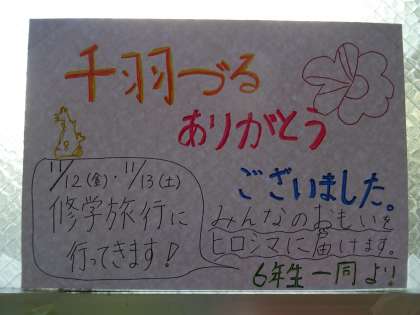 千羽づる
ありがとう
ございました。
11/12(金)・11/13(土)
修学旅行に
行ってきます!
みんなのおもいを
ヒロシマに届けます。
6年生一同より!